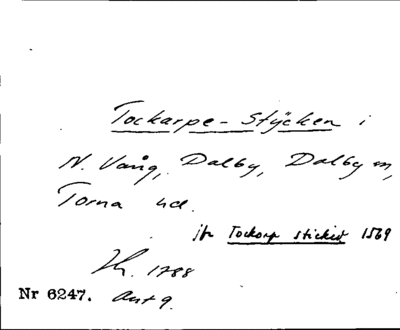 Tockarpe-Stÿcken i
N. Vång, Dalby, Dalby sn,
Torna hd.
jfr Tockarp sticket 1569
Lh. 1788
Nr 6247. Ant 9.